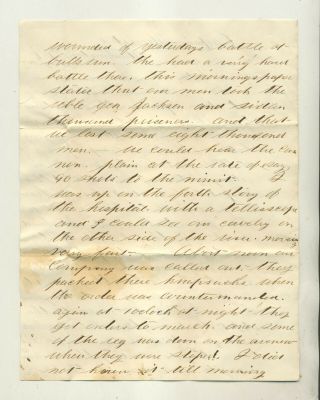 wounded of yesterdays battle at
bull run. the had a very hard
battle thar. this mornings paper
states that our men took the
reble Gen Jackson and sixteen
thousand prisoners. and that
we lost some eight thousend
men. We could hear the can
non. plain at the rate of
90 shots to the minit. I
was up on the forth story of
the hospital. with a telliscope
and I could see our cavelry on
the other side of the river. moving
very fast. About noon our
Company was called out. they
packed there knapsacks when
the order was countermanded.
again at 10 oclock at night they
got orders to march. and some
of the reg was down on the avenue
when they were stoped. I did
not know it till morning